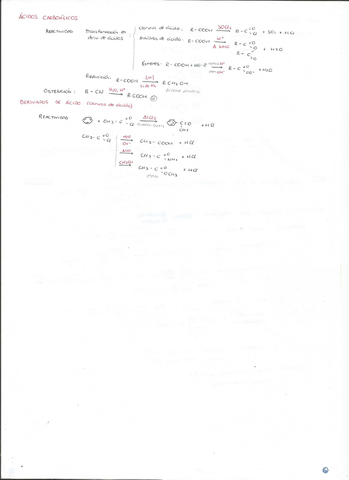 ÁCIDOS CARBOXÍLICOS
REACTIVIDAD Transformación en deriv. de ácidos: Cloruros de ácido: R-COOH SOCl2 R-C=O-Cl + SO2 + HCl
Anhídridos de ácido: R-COOH H+ R-C=O R-C=O + H2O
Ésteres: R-COOH + HO-R R-C=O-OR' + H2O
Reducción: R-COOH R CH2OH
OBTENCIÓN: R-CN H2O, H+ R COOH
DERIVADOS DE ÁCIDO (cloruros de ácido)
REACTIVIDAD + CH3-C=O-Cl AlCl3 C=O CH3 + HCl
CH3-C=O-Cl H2O CH3-COOH + HCl
NH3 CH3-C=O-NH2 + HCl
CH3OH CH3-C=O-OCH3 + HCl